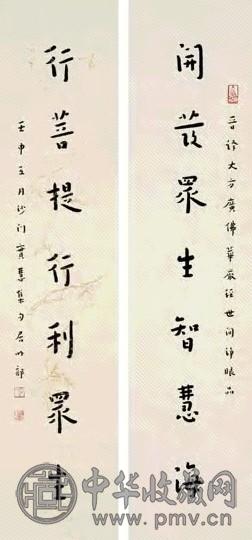 晉譯大方廣佛華嚴經世間淨眼品
開發眾生智慧海
行菩提行利眾生
壬申五月沙门慧集句居
中华收藏网
www.pmv.cn